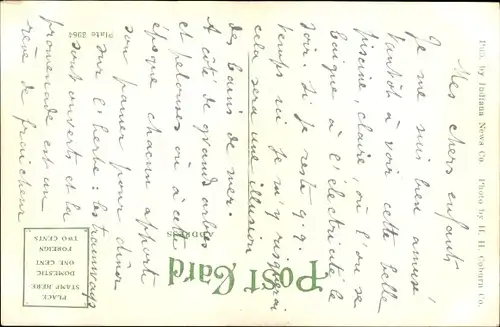 Mes chers enfants
Je me suis bien amusé
tantôt à voir cette belle
piscine, claire, où l'on se
baigne à l'électricité le
soir. Si je reste q.q.
temps ici je m'y risquerai
cela sera une illusion
des bains de mer.
A côté de grands arbres
et pelouses où à cette
époque chacun apporte
son panier pour dîner
sur l'herbe: les tramways
sont ouverts et la
promenade est un
rêve de fraicheur
Pub. by Indiana News Co. Photo by H. H. Coburn Co.
Plate 3964
Post Card
ADDRESS
PLACE
STAMP HERE
DOMESTIC
ONE CENT
FOREIGN
TWO CENTS